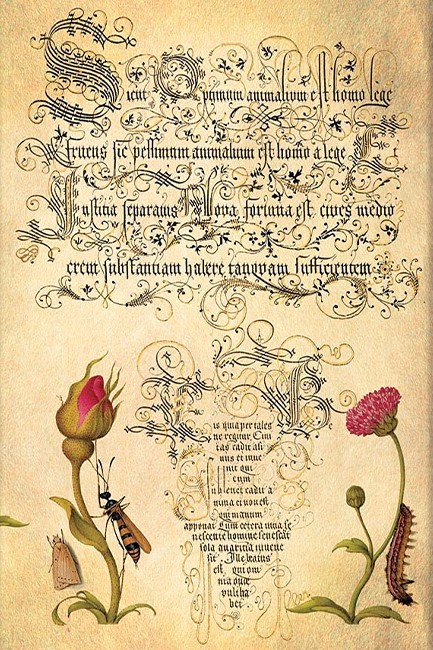 Sicut Optimum animalium est homo lege
fruens sic pessimum animalium est homo a lege E
Iustitia separatus Nova fortuna est cives medio
crem substantiam habere tanqvam sufficientem
is quia per tales
ne regitur Civi
tas cadit asi
nus et inue
nit qui
eum
subleuet cadit a
nima et non est
qui manum
apponat Cum cetera
nescente homine senescat
sola auaritia iuuene
scit Ille beatus
est, qui om
nia que
vult ha
bet